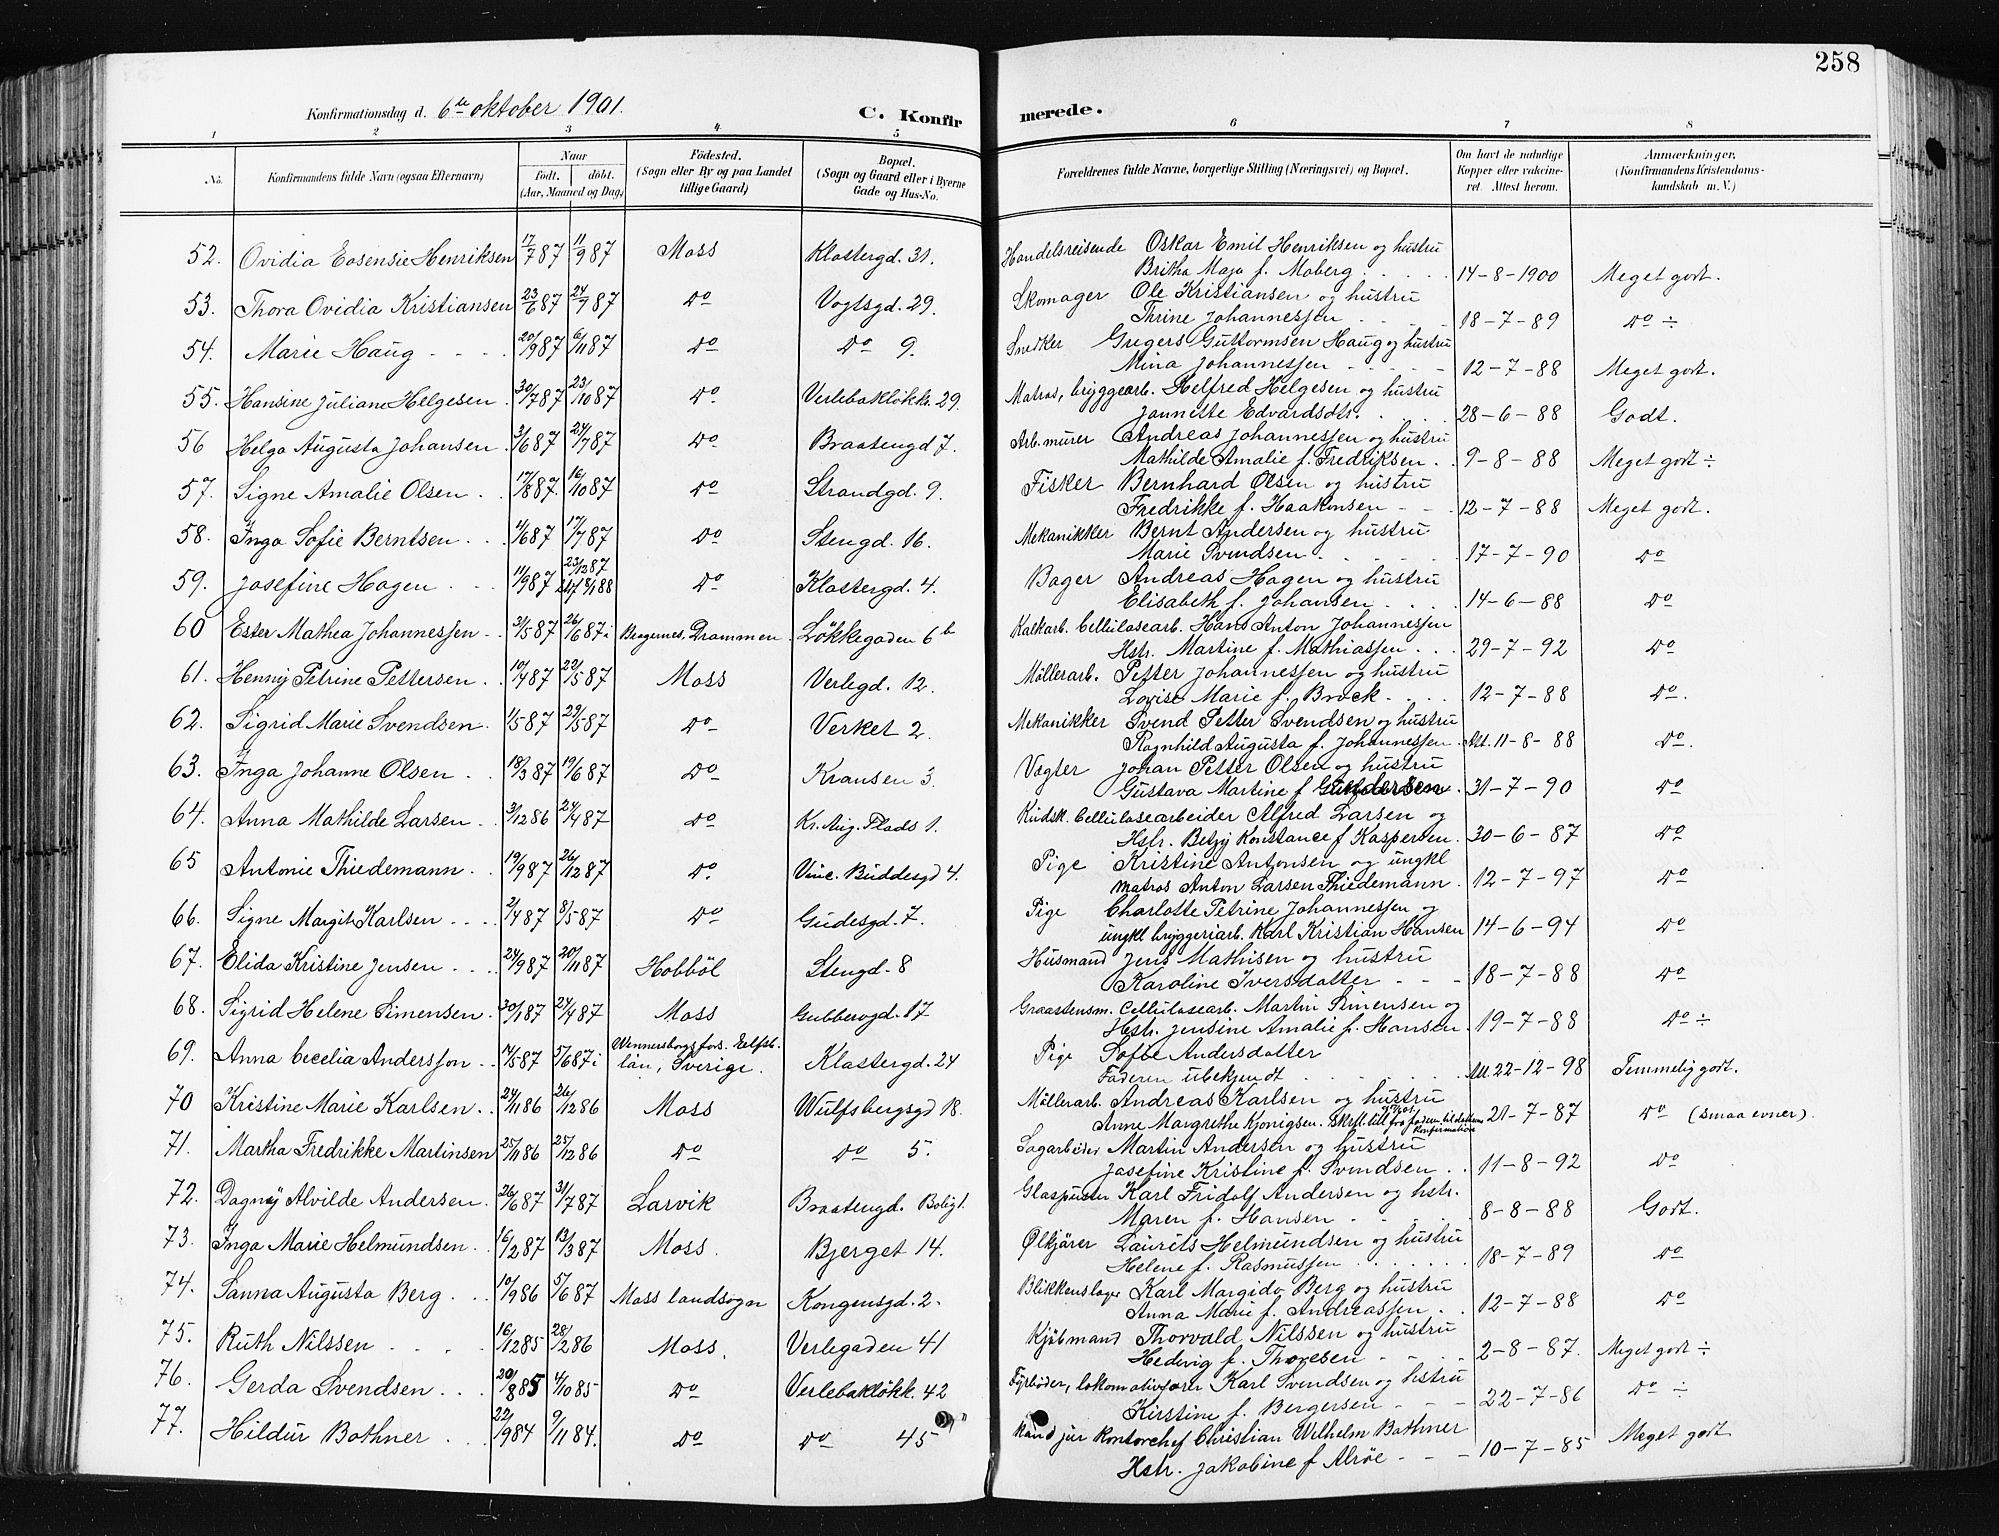 258
Konfirmationsdag d. 6te oktober 1901.
C. Konfir merede.
1 2 3 4 5 6 7 8
No. Konfirmandens fulde Navn (ogsaa Efternavn) Naar født. døbt. (Aar, Maaned og Dag) Födested. (Sogn eller By og paa Landet tillige Gaard) Bopæl. (Sogn og Gaard eller i Byerne Gade og Hus-No. Forældrenes fulde Navne, borgerlige Stilling (Næringsvei) og Bopæl. Om havt de naturlige Kopper eller vakcineret. Attest herom. Anmærkninger. (Konfirmandens Kristendomskundskab m. V.)
52. Ovidia Eosensie Henriksen 17/7 87 11/9 87 Moss Klostergd. 31. Handelsreisende Oskar Emil Henriksen og hustru
Britha Maja f. Moberg 14-8-1900 Meget godt.
53. Thora Ovidia Kristiansen 23/6 87 24/7 87 Do Vogtsgd. 29. Skomager Ole Kristiansen og hustru
Thrine Johannessen 18-7-89 Do ÷
54. Marie Haug 20/9 87 6/11 87 Do Do 9. Snedker Gregers Guttormsen Haug og hustru
Mina Johannessen 12-7-88 Meget godt.
55. Hansine Juliane Helgesen 30/7 87 23/10 87 Do Verlebakløkk. 29. Matros, bryggearb. Helfred Helgesen og hustru
Jannette Edvardsdtr. 28-6-88 Godt.
56 Helga Augusta Johansen 3/6 87 24/7 87 Do Braatengd 7. Arb. murer Andreas Johannessen og hustru
Mathilde Amalie f. Fredriksen 9-8-88 Meget godt ÷
57. Signe Amalie Olsen 17/8 87 16/10 87 Do Strandgd. 9. Fisker Bernhard Olsen og hustru
Fredrikke f. Haakonsen 12-7-88 Meget godt.
58. Inga Sofie Berntsen 11/6 87 17/7 87 Do Stengd. 16. Mekanikker Bernt Andersen og hustru
Marie Svendsen 17-7-90 Do
59. Josefine Hagen 11/9 87 23/12 87 8/1 88 Do Klostergd. 4. Bager Andreas Hagen og hustru
Elisabeth f. Johansen 14-6-88 Do
60 Ester Mathea Johannessen 31/5 87 26/6 87 i Bragernes, Drammen Løkkegaden 6b Kalkarb. Cellulosearb. Hans Anton Johannessen
Hstr. Martine f. Mathiassen 29-7-92 Do
61. Henny Petrine Pettersen 10/4 87 22/5 87 Moss Verlegd. 12. Møllerarb. Petter Johannessen og hustru
Lovise Marie f. Brock 12-7-88 Do.
62. Sigrid Marie Svendsen 1/5 87 29/5 87 Do Verket 2. Mekanikker Svend Petter Svendsen og hustru
Ragnhild Augusta f. Johannessen Att. 11-8-88 Do.
63. Inga Johanne Olsen 18/3 87 19/6 87 Do Kransen 3. Vægter Johan Petter Olsen og hustru
Gustava Martine f Gundersen 31-7-90 Do
64. Anna Mathilde Larsen 3/12 86 24/4 87 Do Kr. Aug. Plads 1. Kudsk. Cellulosearbeider Alfred Larsen og
Hstr. Betzy Konstance f Kaspersen 30-6-87 Do
65 Antonie Thiedemann 19/9 87 26/12 87 Do. Vinc. Buddesgd 4. Pige Kristine Antonsen og ungkl
matros Anton Larsen Thiedemann 12-7-97 Do
66. Signe Margith Karlsen 2/4 87 8/5 87 Do Gudesgd. 7. Pige Charlotte Petrine Johannessen og
ungkl bryggeriarb. Karl Kristian Hansen 14-6-94 Do
67. Elida Kristine Jensen 24/9 87 20/11 87 Hobböl Stengd. 8 Husmand Jens Mathisen og hustru
Karoline Iversdatter 18-7-88 Do
68. Sigrid Helene Simensen 30/1 87 24/4 87 Moss Gubberogd. 17 Graastensm. Cellulosearb. Martin Simensen og
Hstr. Jensine Amalie f. Hansen 19-7-88 Do ÷
69. Anna Cecelia Andersson 14/5 87 5/6 87 i Wennersborgs fors. Elfsb. län, Sverige. Klostergd. 24 Pige Sofie Andersdatter
Faderen ubekjendt Att 22-12-98 Temmelig godt.
70 Kristine Marie Karlsen 24/11 86 26/12 86 Moss Wulfsbergsgd 18. Møllerarb. Andreas Karlsen og hustru
Anne Margrethe Kjonigsen. Skrftl. till. fra faderen til dattens Konfirmation 21-7-87 Do (smaa evner).
71. Martha Fredrikke Martinsen 25/11 86 25/12 86 Do Do 5. Sagarbeider Martin Andersen og hustru
Josefine Kristine f. Svendsen 11-8-92 Do
72. Dagny Alvilde Andersen 26/6 87 31/7 87 Larvik Braatengd. Bolig 1. Glaspuster Karl Fridolf Andersen og hstr.
Maren f. Hansen 8-8-88 Godt.
73. Inga Marie Helmundsen 16/2 87 13/3 87 Moss. Bjerget 14. Ølkjører Laurits Helmundsen og hustru
Helene f. Rasmussen 18-7-89 Do
74. Sanna Augusta Berg 10/9 86 5/6 87 Moss landsogn Kongensgd. 2. Blikkenslager Karl Margido Berg og hustru
Anna Marie f. Andreassen 12-7-88 Do
75. Ruth Nilssen 16/12 85 28/2 86 Moss. Verlegaden 41 Kjøbmand Thorvald Nilssen og hustru
Hedevig f. Thoresen 2-8-87. Meget godt ÷
76. Gerda Svendsen 20/8 85 4/10 85 Do Verlebakløkk. 42 Fyrbøder, lokomativfører Karl Svendsen og hstru
Kirstine f. Bergersen 22-7-86 Do ÷
77. Hildur Bothner 22/9 84 9/11 84. Do Do 45 Kand jur Kontorchef Christian Wilhelm Bothner
Hstr. Jakobine f Alrøe 10-7-85 Meget godt